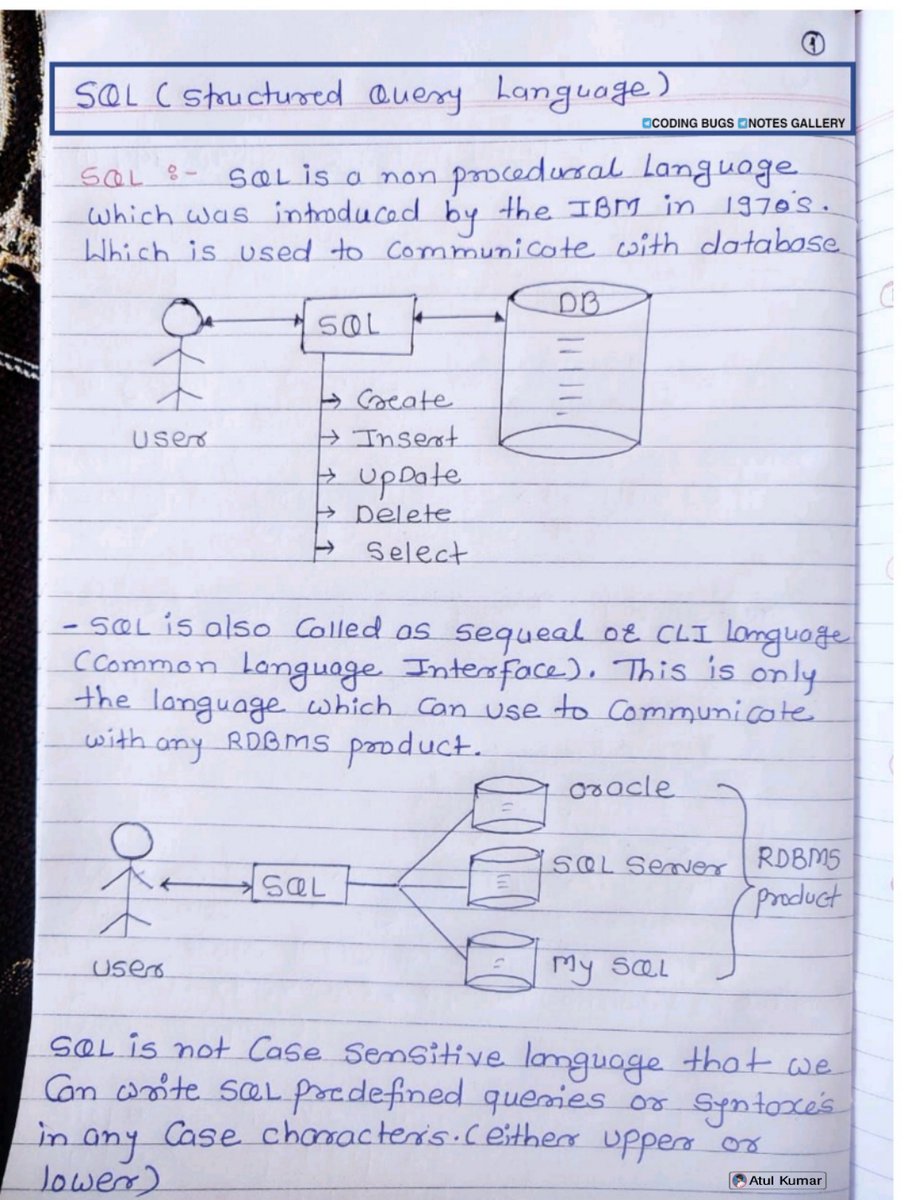 1
SQL (Structured Query Language)
CODING BUGS NOTES GALLERY
SQL :- SQL is a non procedural Language
which was introduced by the IBM in 1970's.
Which is used to Communicate with database
SQL
DB
User
→ Create
→ Insert
→ UpDate
→ Delete
→ Select
- SQL is also Called as sequeal or CLI Language
(Common Language Interface). This is only
the language which Can use to Communicate
with any RDBMS product.
Oracle
SQL Server
My SQL
RDBMS
product
SQL
User
SQL is not Case Sensitive language that we
Can write SQL predefined queries or Syntaxes
in any Case characters. (either upper or
lower)
Atul Kumar